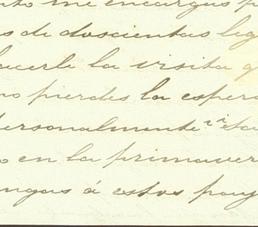 nto me encargas p
s de doscientas leg
hacerle la visita q
no pierdes la espera
personalmente
o en la primaver
engas á estos pay